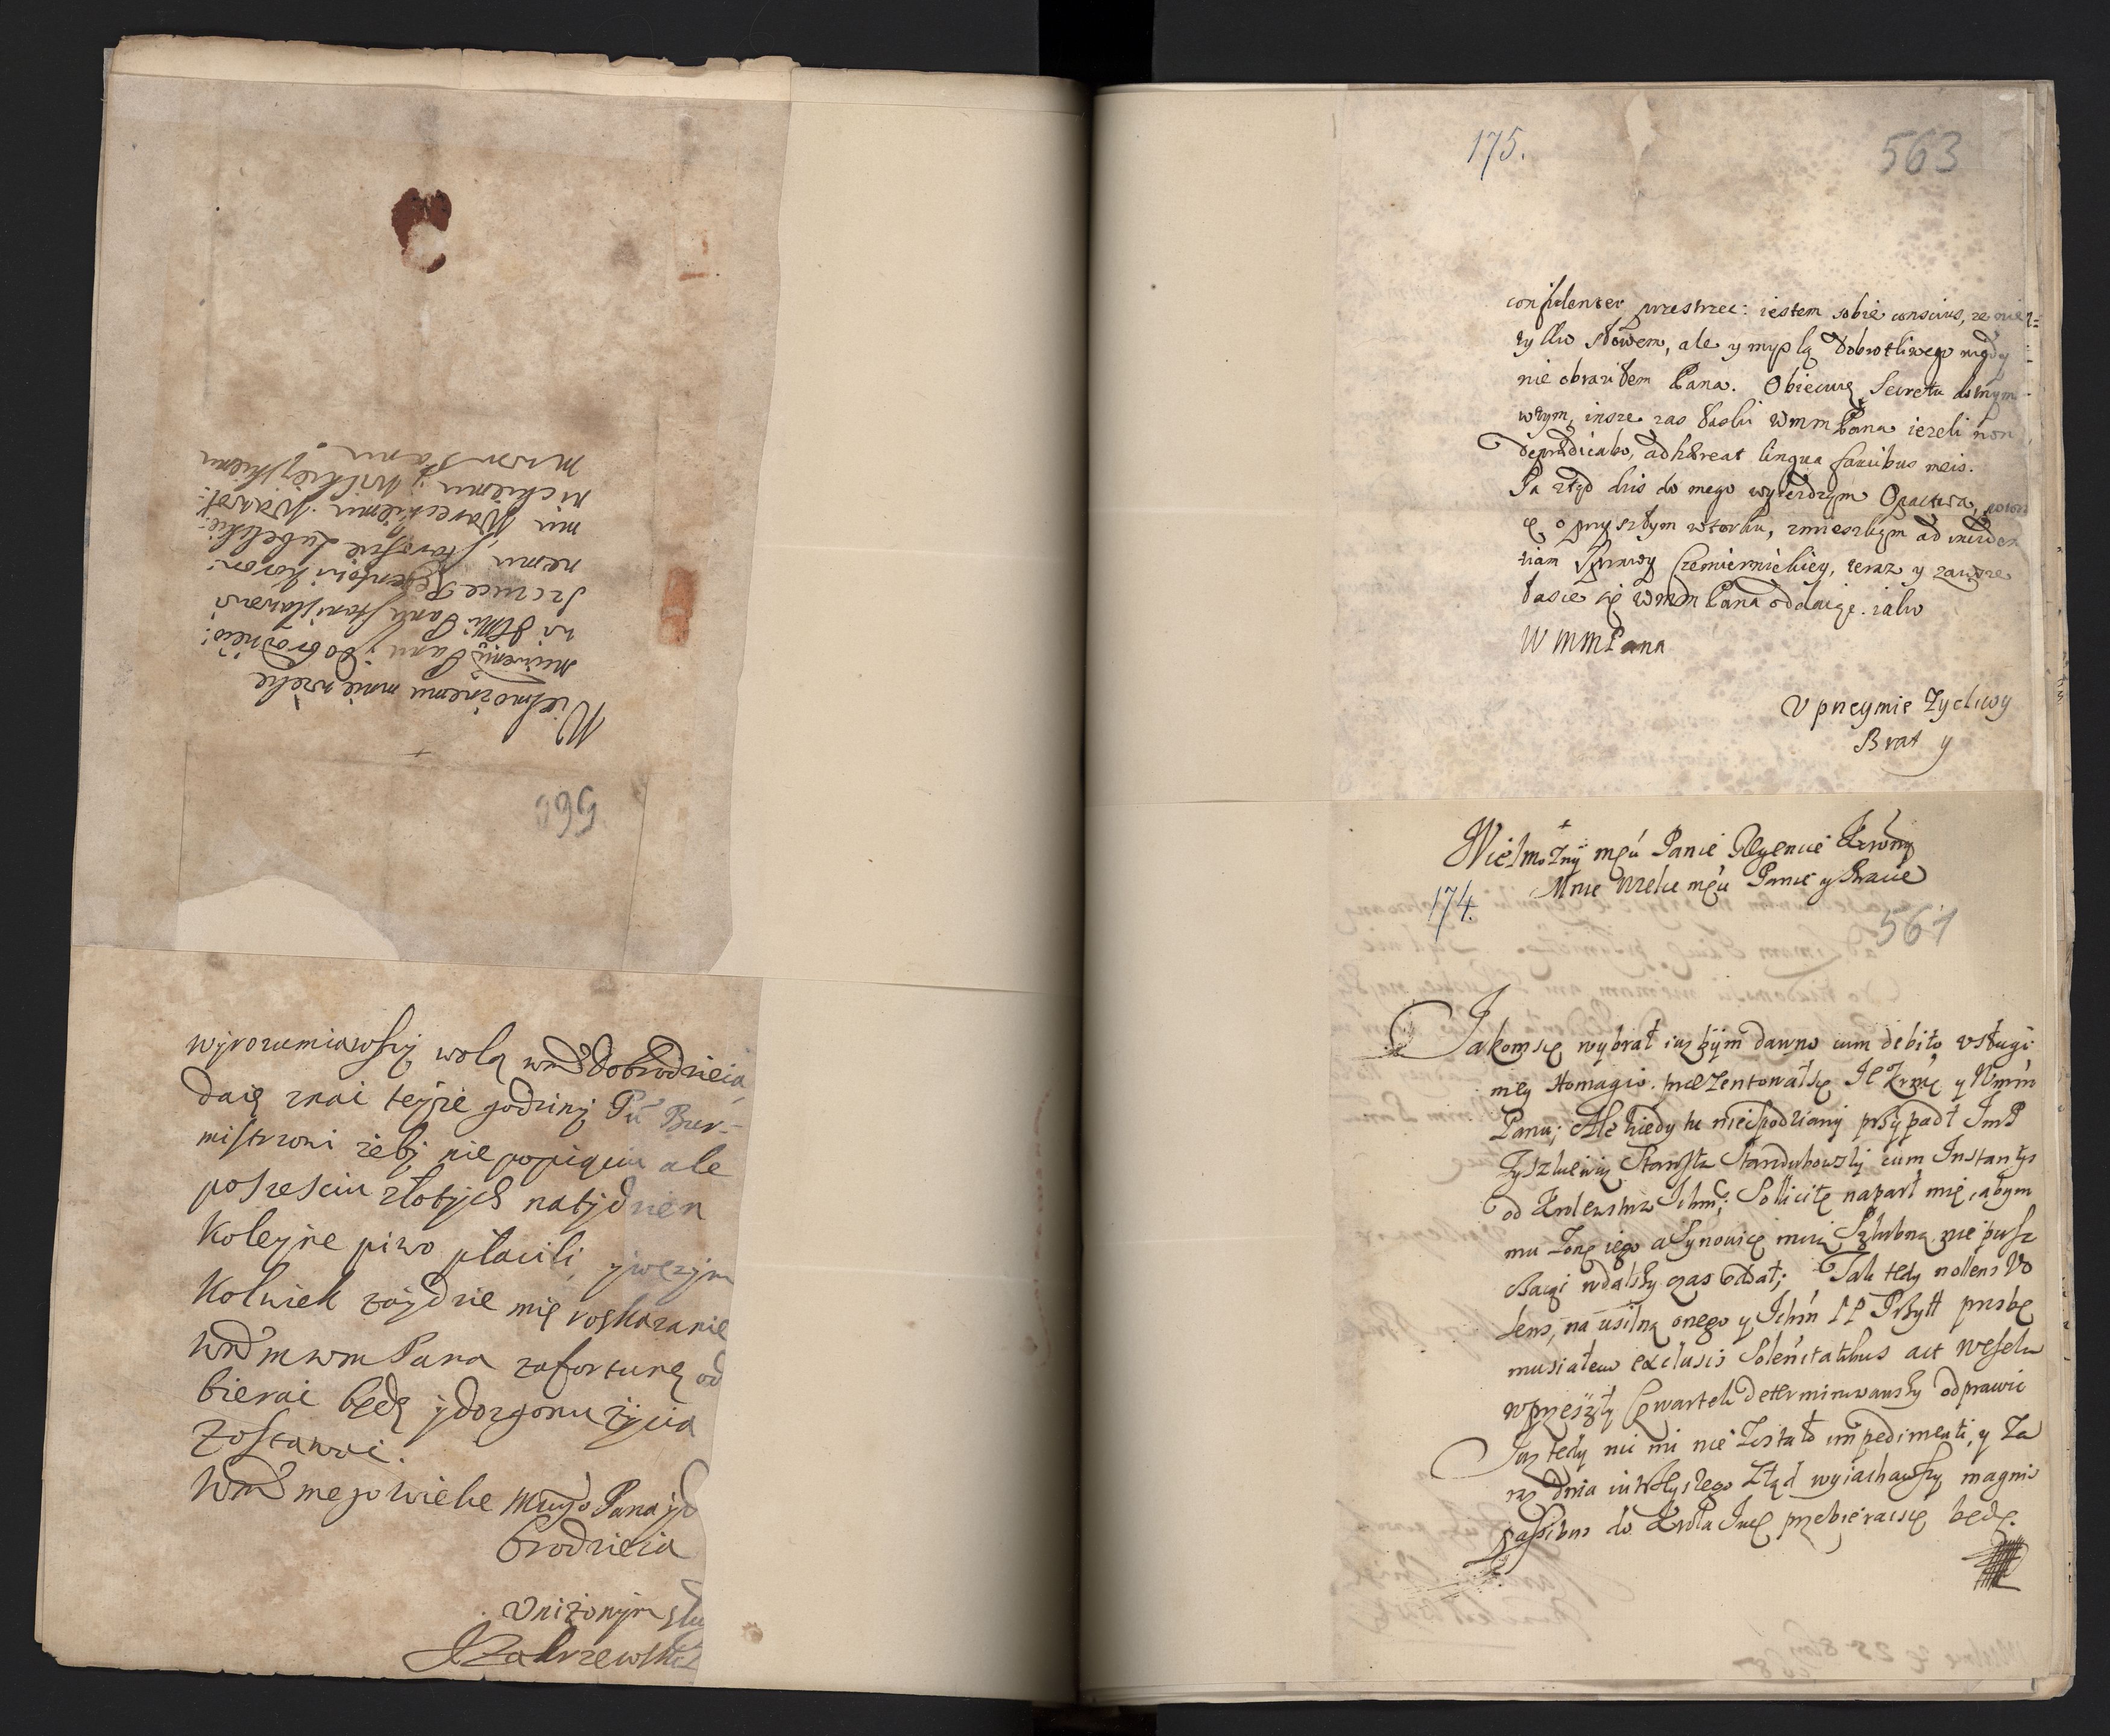 560
Wielmożnemu mnie wielce
Miwemu Panu y Dobrodzieio:
wi JEMci Panu Stanisławowi
Szczuce Regentowi Koron:
nemu, Staroście Lubelskie:
mu Wareckiemu Wawol:
nickiemu y Wilkiyskiemu
Mwm Panu
wyrozumiawszy wolą wmd Dobrodzieia
daię znać teyże godziny Pu Bur-
mistrzowi żeby nie popiąciu ale
poszesciu złotych natydzien
Koleyne piwo płacili, y wczym
Kolwiek zaydzie mię roskazanie
Wmd mwm Pana zafortunę od
bierać będę y dozgonu życia
Zostawać.
Wmd mego wielce Mwgo Pana y do
brodzieia
Uniżonym słu
JZakrzewski
175.
563
confidenter przestrzec: iestem sobie conscius, ze nie
tylko słowem, ale y myslą Dobrotliwego nigdy
nie obraziłem Pana. Obiecuię Secretu
wtym, insze zas łaski WmmPana iezeli non
depraedicabo, adhaereat lingua faucibus meis.
Ja ztąd dzis do mego wyiezdzam Opactwa,
o przyszłym wtorku, zmieszkam ad
Sprawy Czemiernickiey, teraz y zawsze
łasce się WmmPana oddaięc. iako
WMMPana
Upreymie Zyczliwy
Brat y
Wielmożny mću Panie Regencie Krwny
Mnie wielce mću Panie y Bracie
174.
561
Jakomsię wybrał iuz bÿm dawno cum debito usługi
mey Homagio. przezentowałsię JE Krmć y Wmm
Panu; Ale kiedy tu niespodziany przypadł JmP
Zyszkiewicz Starosta Starodubowsky cum Instantys
od Krolewstwa Ichm; Sollicite naparł mię, abym
mu Zonę iego a Synowicę moią Szlubną nie pusz
czaiąc wdalszy czas oddał; Tak tedy nollens Vo
lens, na usilną onego y Ichm PP Przyłł prozbę
musiałem exclusis Solenitatibus act Wesela
wprzeszły Czwartek determinowawszy odprawic
Juz tedy nic mi nie Zostało impedimenti, y Za
raz dnia iutrzyszego Ztąd wyiachawszy magnis
passibus do Krola Jmć przebieracsię będę.